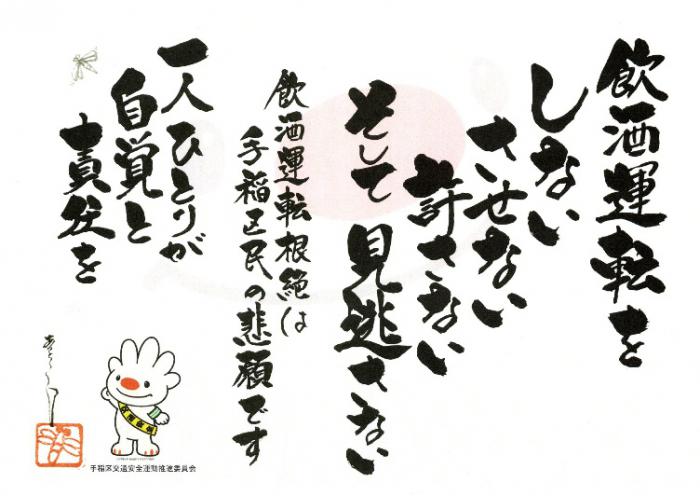 飲酒運転を
しない
させない
許さない
そして見逃さない
飲酒運転根絶は
手稲区民の悲願です
一人ひとりが
自覚と
責任を
手稲区交通安全運動推進委員会